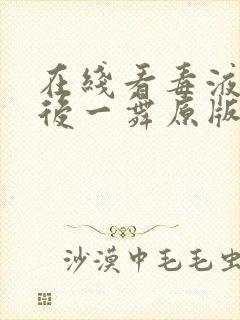 在綫看毒液
後一舞原版
沙漠中毛毛虫